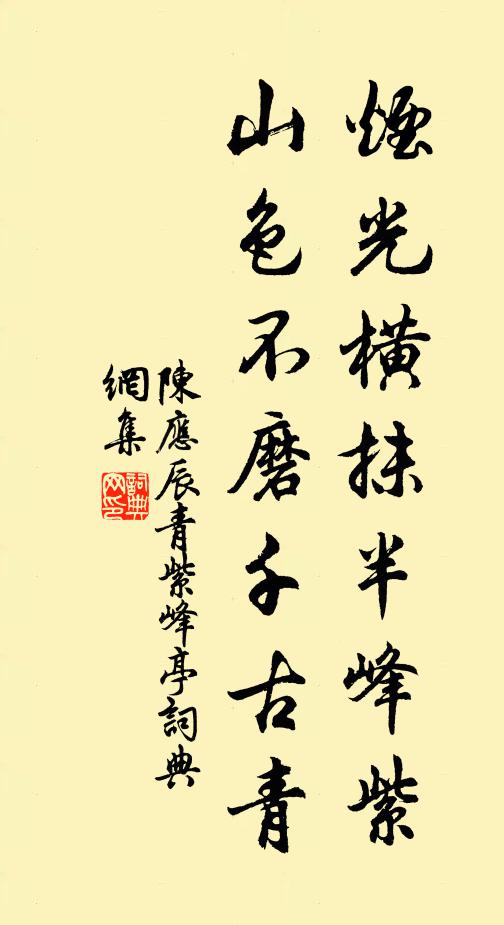 煙光橫抹半峰紫
山色不磨千古青
陳應辰青紫峰亭詞典
網集
詞典
网印